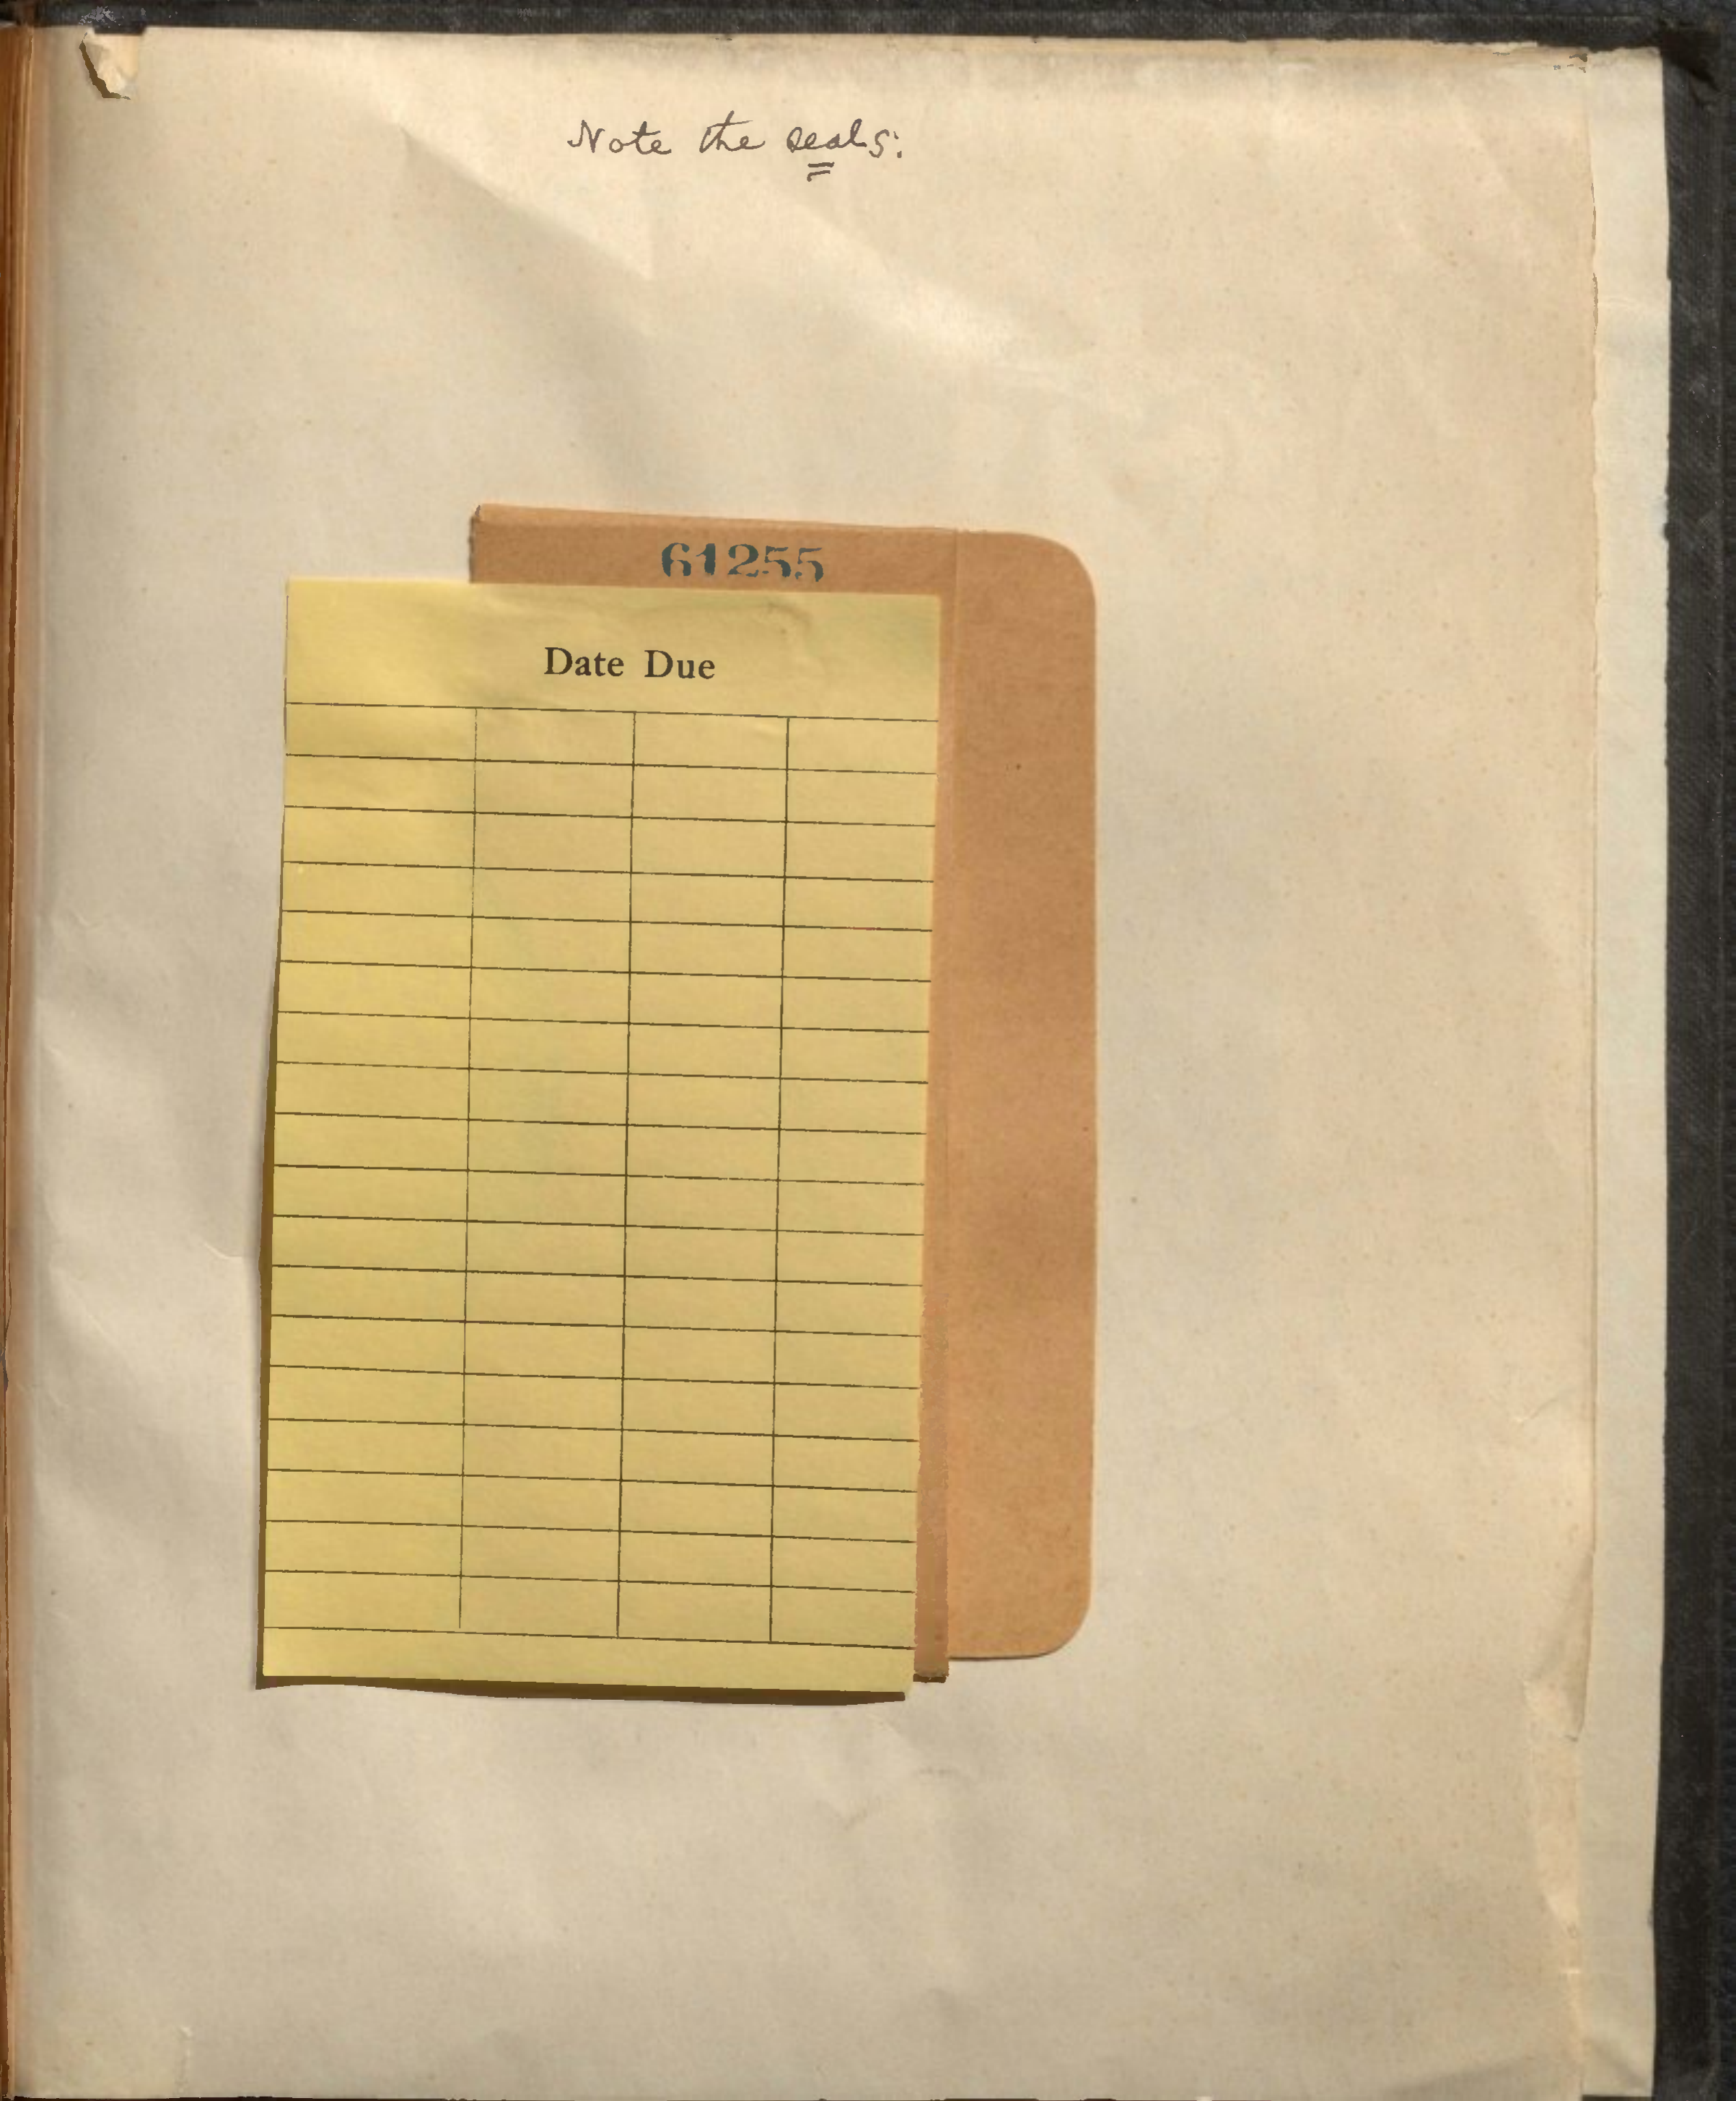 Note the seals:
61255
Date Due